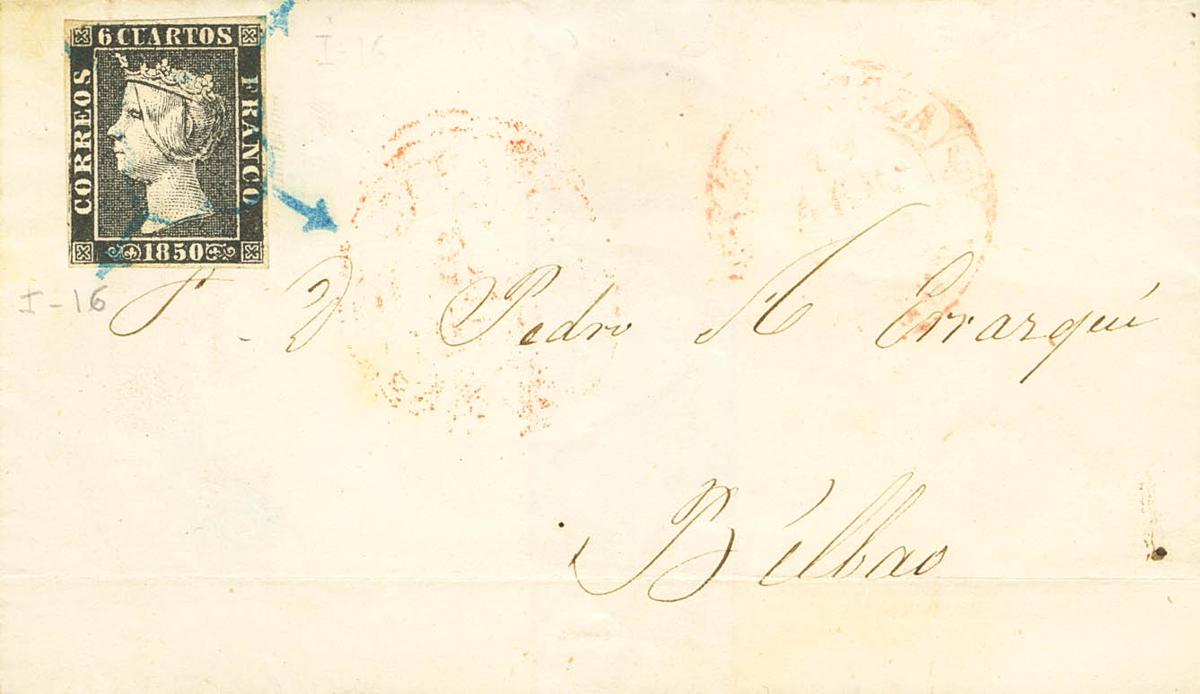 6 CUARTOS
CORREOS
FRANCO
1850
I-16
I-16
D Pedro A Errazquú
Bilbao